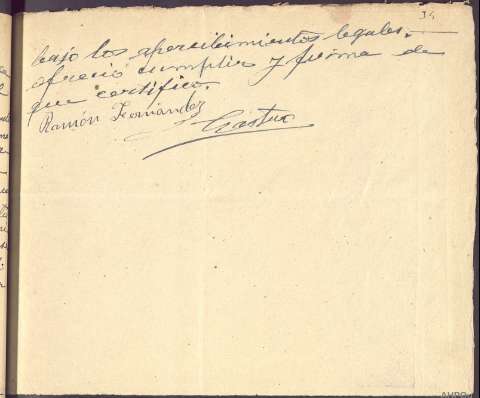 34
bajo los apercibimientos legales.
ofreció cumplir y firma de
que certifico.
Ramón Fernández
Castro